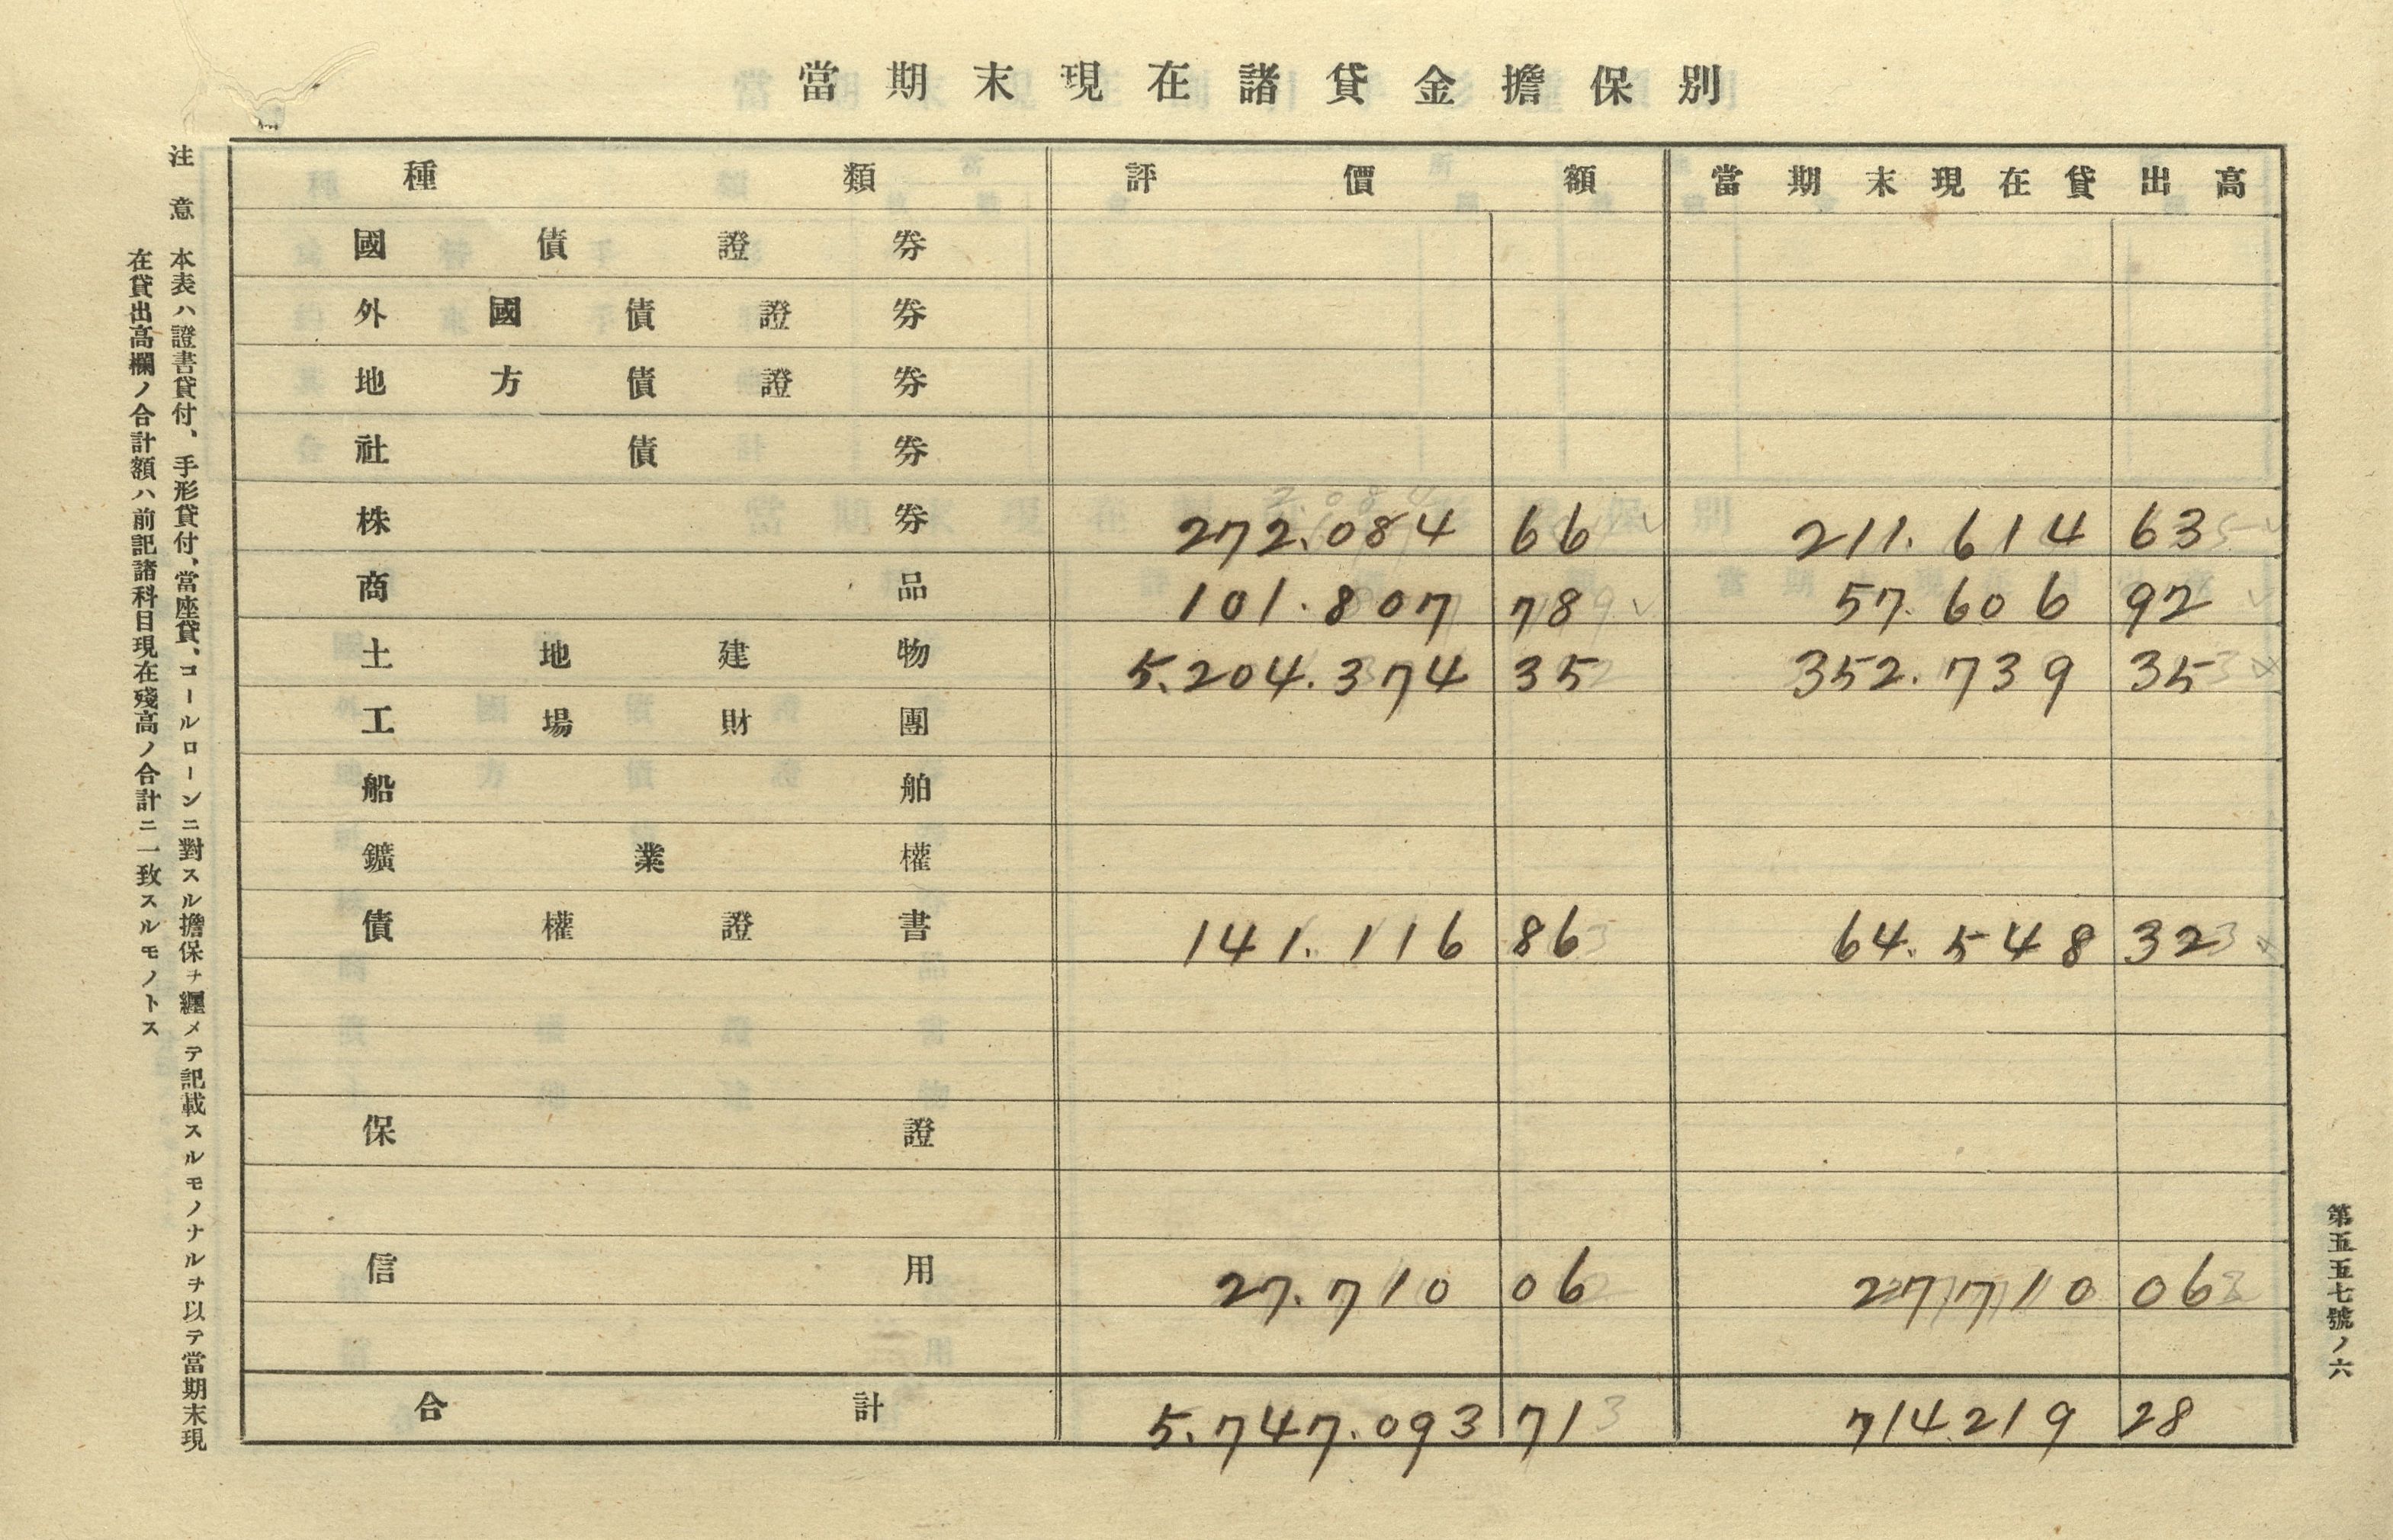 當期末現在諸貸金擔保別
種類 評價額 當期末現在貸出高
國債證券
外國債證券
地方債證券
社債券
株券 272.084 66 211.614 63
商品 101.807 78 57.606 92
土地建物 5.204.374 35 352.739 35
工場財團
船舶
鑛業權
債權證書 141.116 86 64.548 32
保證
信用 27.710 06 27710 06
合計 5.747.093 71 714.219 28
注意
本表ハ證書貸付、手形貸付、當座貸、コールローンニ對スル擔保ヲ纒メテ記載スルモノナルヲ以テ當期末現
在貸出高欄ノ合計額ハ前記諸科目現在殘高ノ合計ニ一致スルモノトス
第五五七號ノ六